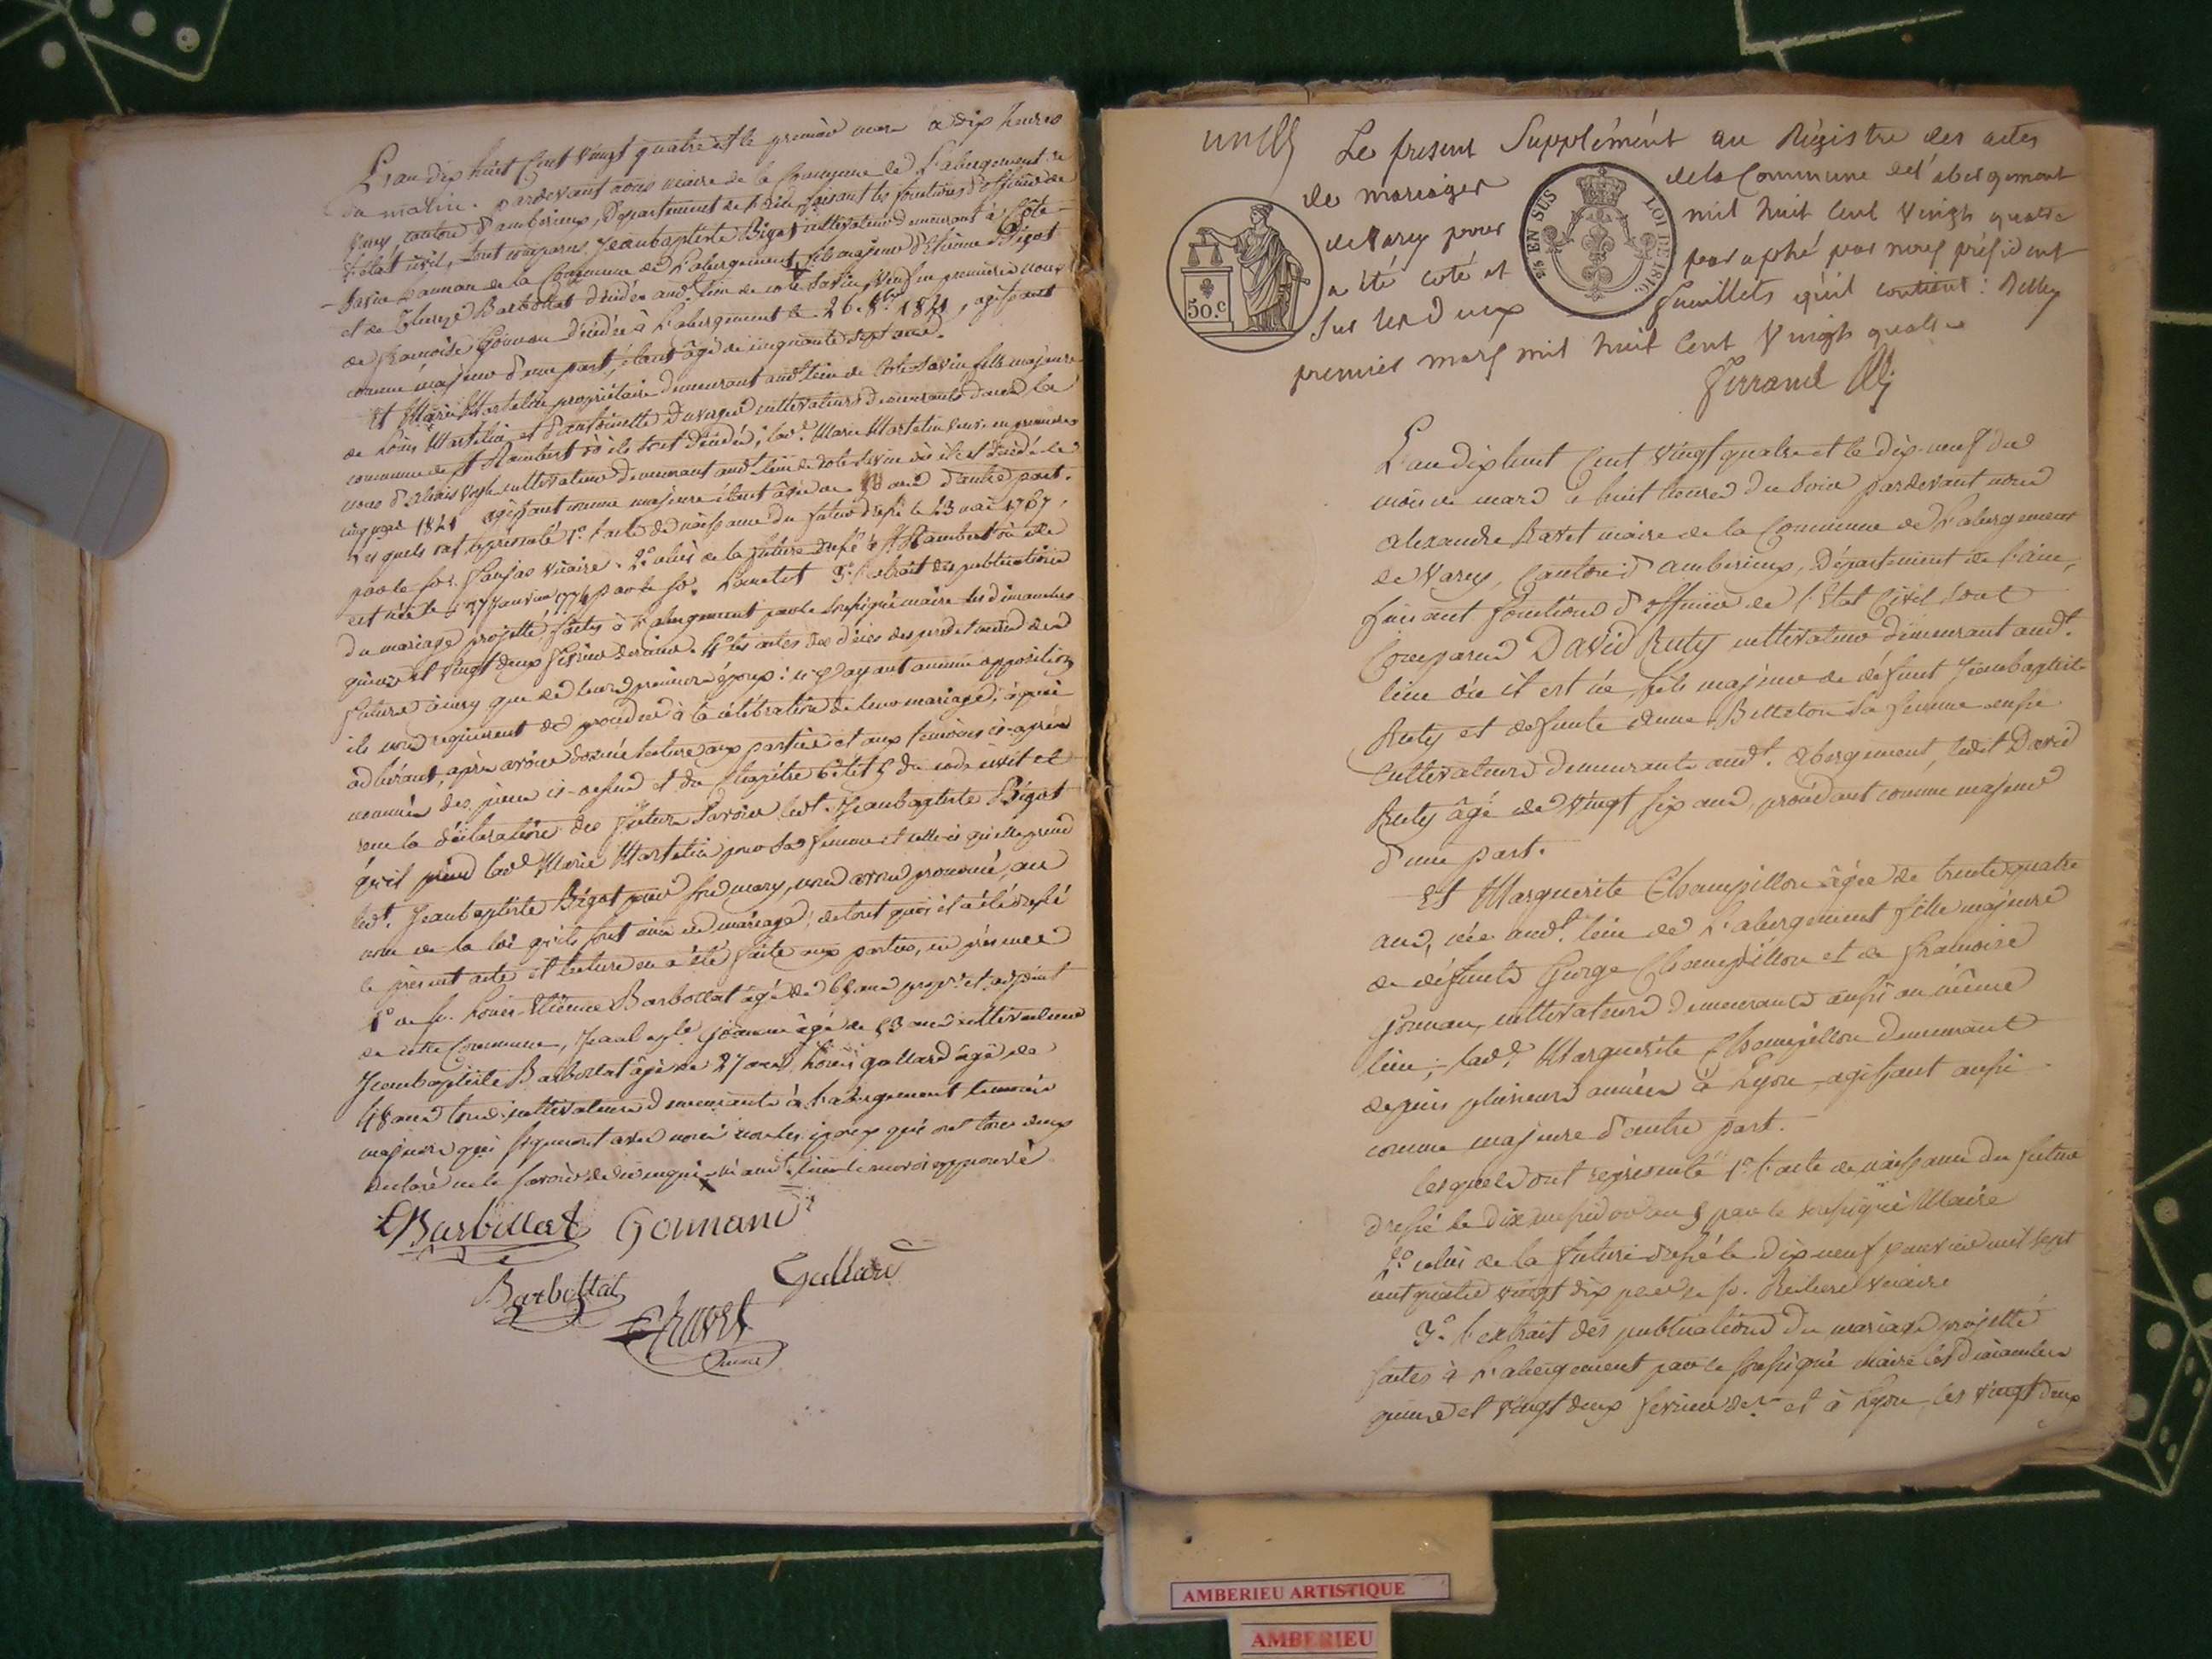 L'an dix huit Cent Vingt quatre et le premier mars à dix heures
du matin. pardevant nous maire de la Commune de L'abergement de
Varey, canton d'amberieux, Département de l'ain, faisant les fonctions d'officier de
l'état civil, sont comparus Jeanbaptiste Bigot cultivateur demeurant à Côte
Savin hameau de la Commune de L'abergement, fils majeur d'Etienne Bigot
et de Barbollat décédés aud. lieu de cote Savin, veuf en premières noces
de françoise Gounan décédée à L'abergement le 26 8bre 1821, agissant
comme majeur d'une part, étant âgé de cinquante sept ans.
Et Marie Martelin propriétaire demeurant aud. lieu de Cote Savin fille majeure
de Louis Martelin et d'antoinette cultivateurs demeurants dans la
commune de St Rambert où ils sont décédés, lad.e Marie Martelin veuve en premières
noces cultivateur demeurant aud. lieu de cote Savin où il est décédé le
cinq 1821 agissant comme majeure étant âgée de ans d'autre part.
Lesquels ont représenté 1.o l'acte de naissance du futur dressé le 23 mai 1767,
par le sr. vicaire. 2.o celui de la future dressé à St Rambert où elle
est née le janvier par le sr. 3.o l'extrait des publications
du mariage projetté faites à L'abergement par le soussigné maire les dimanches
quinze et vingt deux février dernier. 4.o les actes de décès des père et mère des
futurs ainsi que de leurs premiers époux: n'y ayant aucune opposition
ils nous requièrent de procéder à la célébration de leur mariage, à quoi
adhérant, après avoir donné lecture aux parties et aux témoins ci-après
nommés des pièces ci-dessus et du chapitre 6 du code civil et
reçu la déclaration des futurs savoir led.t Jeanbaptiste Bigot
qu'il prend lad.e Marie Martelin pour sa femme et celle-ci qu'elle prend
led.t Jeanbaptiste Bigot pour son mary, nous avons prononcé, au
nom de la loi qu'ils sont unis en mariage, de tout quoi il a été dressé
le présent acte et lecture en a été faite aux parties, en présence
1.o de sr. Louis Etienne Barbollat âgé de ans propr.e et adjoint
de cette Commune, Jean Gounan âgé de 53 ans cultivateur
Jeanbaptiste Barbollat âgé de 27 ans, Louis gallard âgé de
48 ans tous cultivateurs demeurants à L'abergement témoins
majeurs qui signeront avec nous non les époux qui ont tous deux
déclaré ne le savoir de ce enquis
Barbollat Gounand
Barbollat Gallard
Ravet
maire
Le présent Supplément au Régistre des actes
de mariages de la Commune de L'abergement
de Varey pour mil huit cent vingt quatre
a été coté et paraphé par nous président
sur les deux feuillets qu'il contient: Belley
premier mars mil huit cent vingt quatre
50.c
EN SUS
LOI DE 1816.
Ferrand
L'an dix huit Cent Vingt quatre et le dix-neuf du
mois de mars à huit heures du soir pardevant nous
alexandre Ravet maire de la Commune de L'abergement
de Varey, Canton d'amberieux, Département de l'ain,
faisant fonctions d'officier de l'Etat Civil sont
Comparus David Ruty cultivateur demeurant aud.t
lieu où il est né, fils majeur de défunt Jeanbaptiste
Ruty et defunte Billeton sa femme aussi
Cultivateurs demeurants aud.t abergement, led.t David
Ruty âgé de vingt six ans, procédant comme majeur
d'une part.
Et Marguerite Champillon âgée de trente quatre
ans, née aud.t lieu de L'abergement fille majeure
de défunts George Champillon et de françoise
Gounan, cultivateurs demeurants aussi au même
lieu; lad.e Marguerite Champillon demeurant
depuis plusieurs années à Lyon, agissant aussi
comme majeure d'autre part.
Lesquels ont représenté 1.o l'acte de naissance du futur
dressé le dix messidor an 5 par le soussigné Maire
2.o celui de la future dressé le dix neuf janvier mil sept
cent quatre vingt dix par le sr. vicaire
3.o l'extrait des publications du mariage projetté
faites à L'abergement par le soussigné Maire les dimanches
quinze et vingt deux février der. et à Lyon les vingt deux
AMBERIEU ARTISTIQUE
AMBERIEU